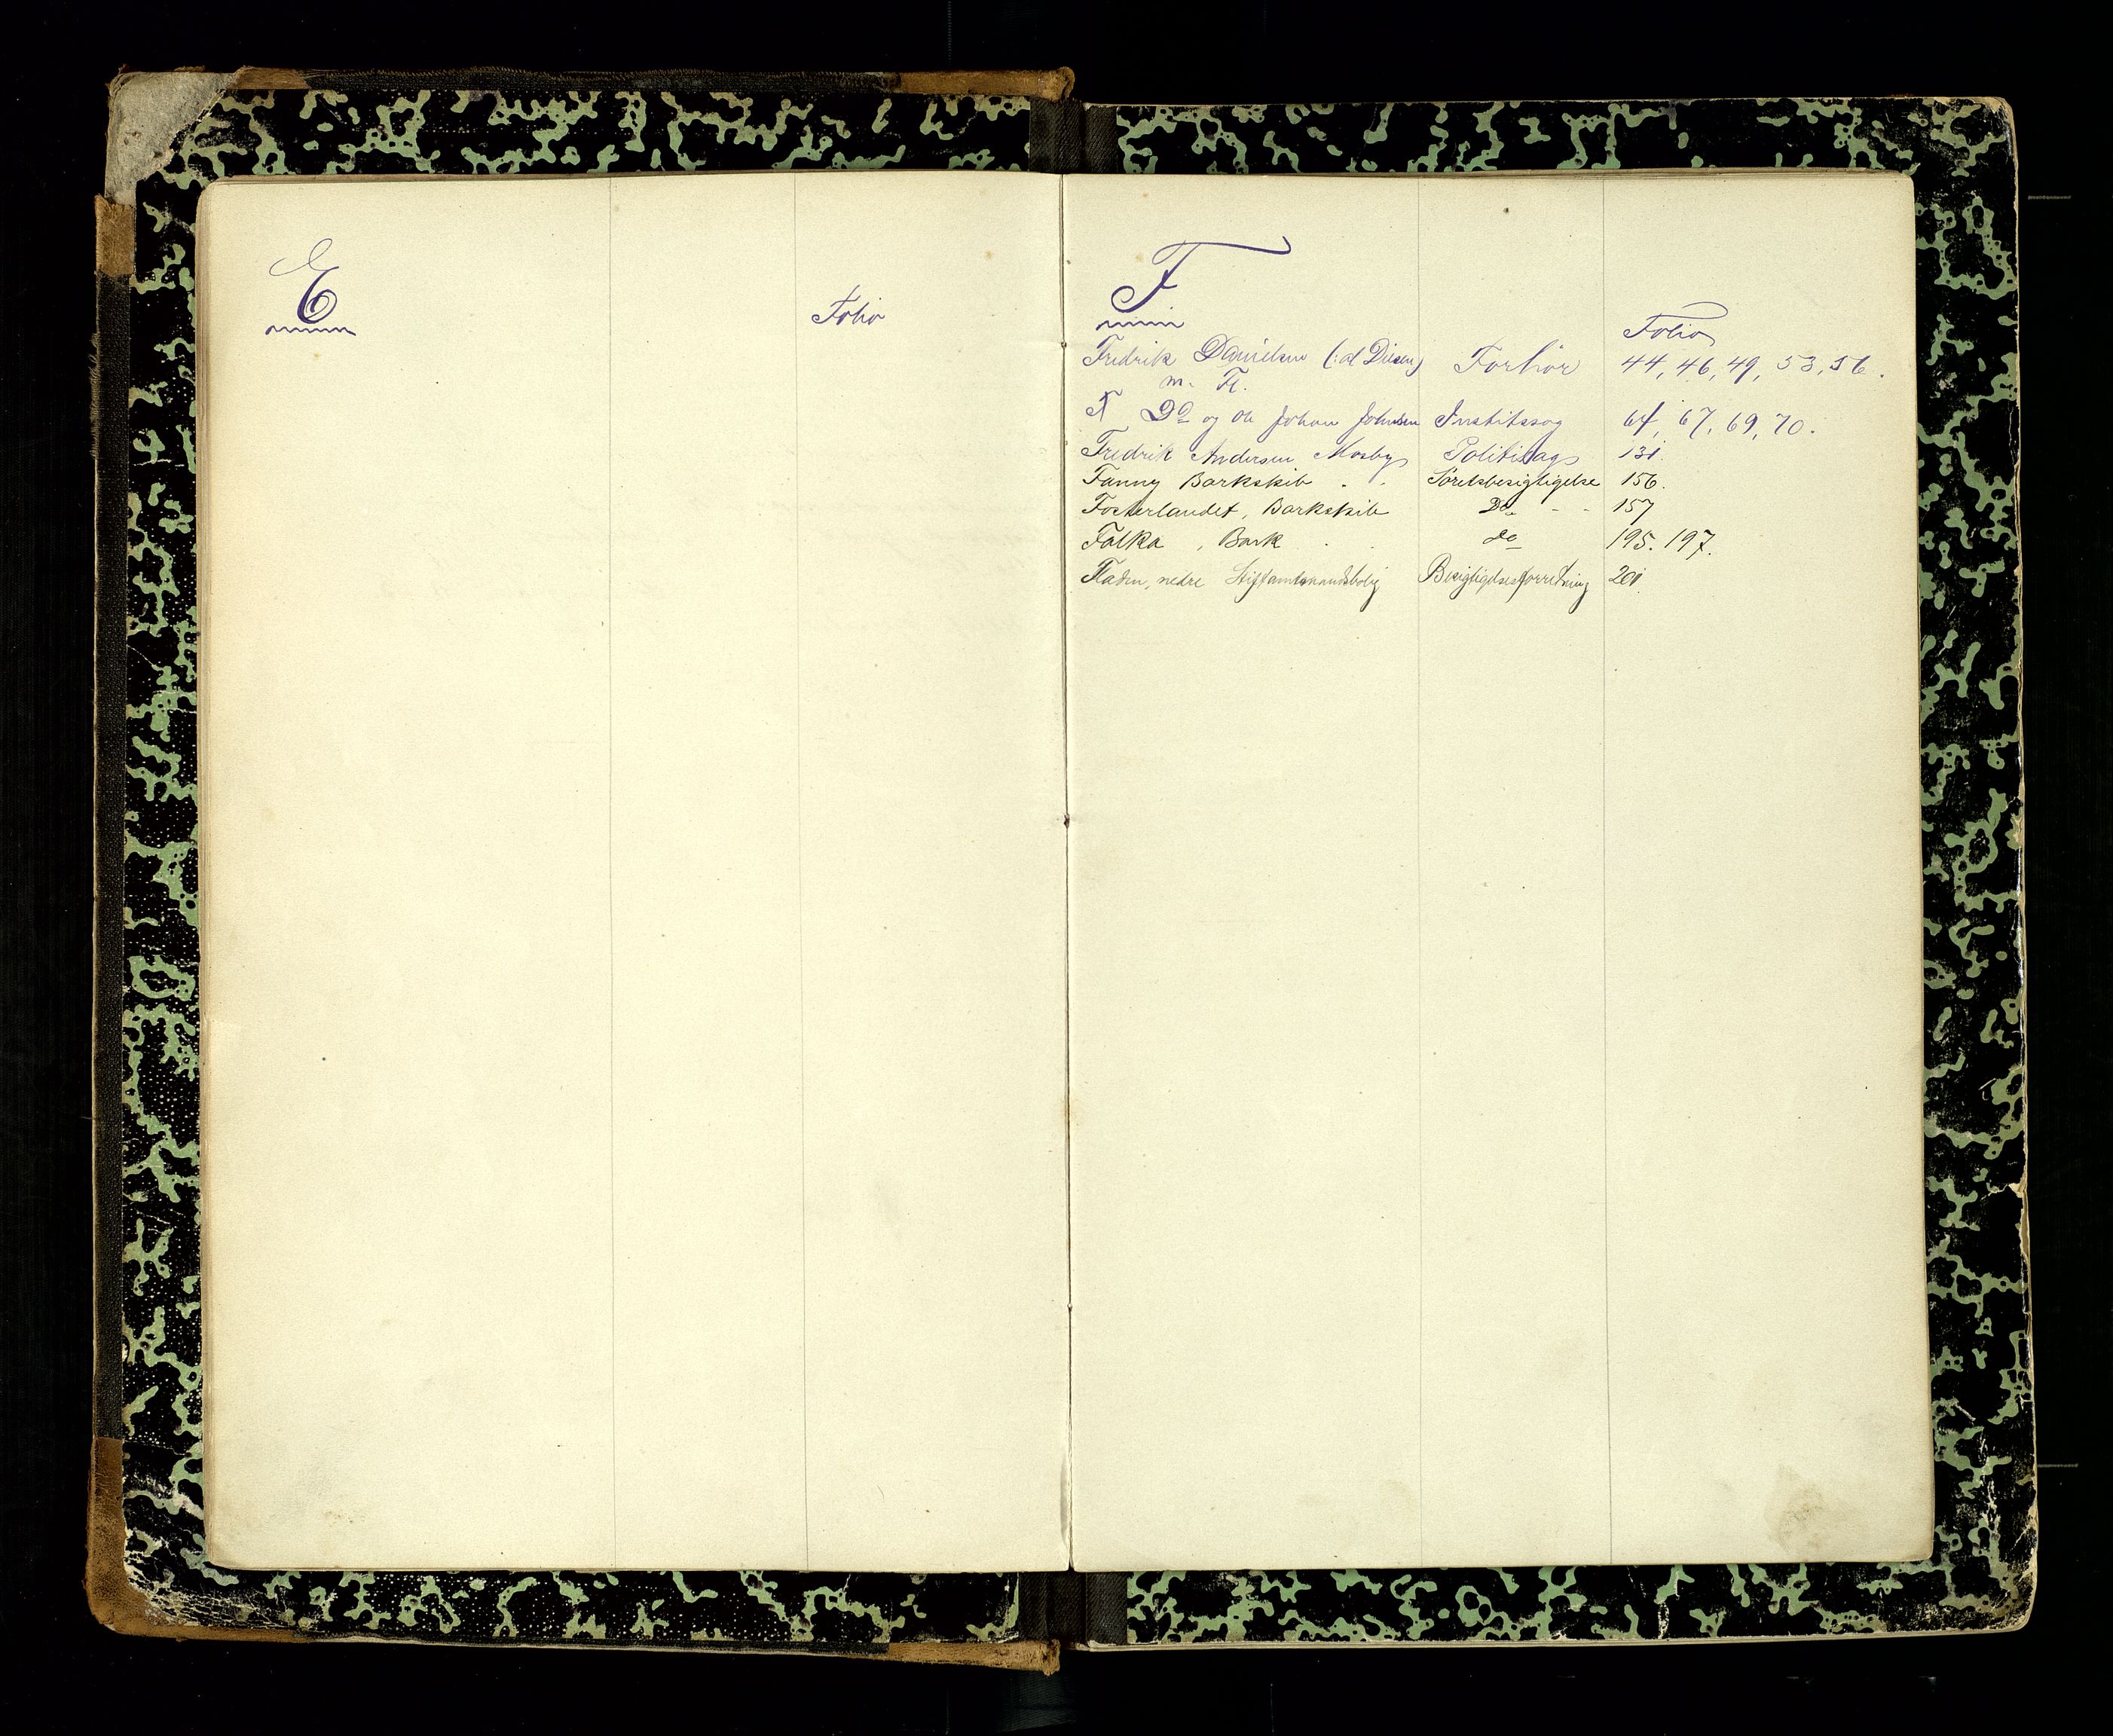 E
Folio
F
Folio
Fredrik Danielsen (: al Diesen) Forhør 44, 46, 49, 53, 56.
m. Fl.
F Do og Ole Johan Johnsen Justitssag 64, 67, 69, 70.
Fredrik Andersen Mosby Politisag 131.
Fanny Barkskib . . Søretsbesigtigelse 156.
Fosterlandet, Barkskib Do - - 157
Falka, Bark . . do 195. 197.
Fladen, nedre Stiftamtmandsbolig Besigtigelsesforretning 201.